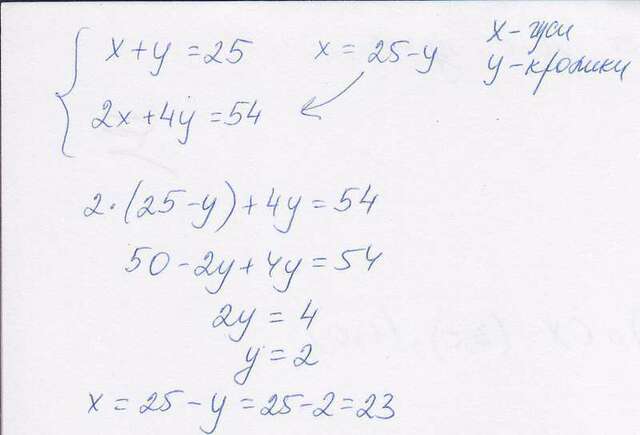 x + y = 25
x = 25 - y
x - гуси
y - кролики
2x + 4y = 54
2 · (25 - y) + 4y = 54
50 - 2y + 4y = 54
2y = 4
y = 2
x = 25 - y = 25 - 2 = 23